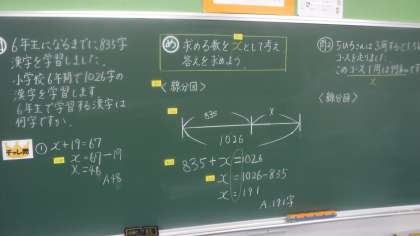 ６年生になるまでに、835字
漢字を学習しました。
小学校６年間で1026字の
漢字を学習します
６年生で学習する漢字は
何字ですか。
チャレ問
① x+19=67
x=67-19
x=48
A.48
め 求める数をxとして考え
答えを求めよう。
〈線分図〉
835
x
1026
835+x=1026
x=1026-835
x=191
A.191字
コースを走りました。
このコース1周は
x
〈線分図〉